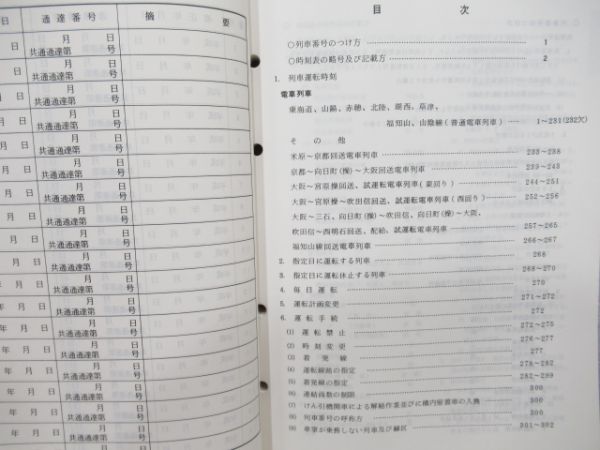 通達番号 摘 要
日 月 日 共通通達第 号
日 月 日 共通通達第 号
日 月 日 共通通達第 号
日 月 日 共通通達第 号
日 月 日 共通通達第 号
日 月 日 共通通達第 号
日 月 日 共通通達第 号
日 月 日 共通通達第 号
日 月 日 共通通達第 号
月 日 月 日 共通通達第 号
月 日 月 日 共通通達第 号
年 月 日 月 日 共通通達第 号
年 月 日 月 日 共通通達第 号
年 月 日 月 日 共通通達第 号
年 月 日 月 日 共通通達第 号
目 次
○列車番号のつけ方 1
○時刻表の略号及び記載方 2
1. 列車運転時刻
電車列車
東海道、山陽、赤穂、北陸、湖西、草津、
福知山、山陰線(普通電車列車) 1~231(232欠)
そ の 他
米原~京都回送電車列車 233~238
京都~向日町(操)~大阪回送電車列車 239~243
大阪~宮原操回送、試運転電車列車(東回り) 244~251
大阪~宮原操~吹田信回送、試運転電車列車(西回り) 252~256
大阪~三石、向日町(操)~吹田信、向日町(操)~大阪、
吹田信~西明石回送、配給、試運転電車列車 257~265
福知山線回送電車列車 266~267
2. 指定日に運転する列車 268
3. 指定日に運転休止する列車 268~270
4. 毎日運転 270
5. 運転計画変更 271~272
6. 運転手続 272
(1) 運転禁止 272~275
(2) 時刻変更 276~277
(3) 着発線 277
(4) 運転線路の指定 278~282
(5) 着発線の指定 282~299
(6) 連結両数の制限 300
(7) けん引機関車による解結作業並びに構内留置車の入換 300
(8) 列車番号の呼称方 300
(9) 車掌が乗務しない列車及び線区 301~302